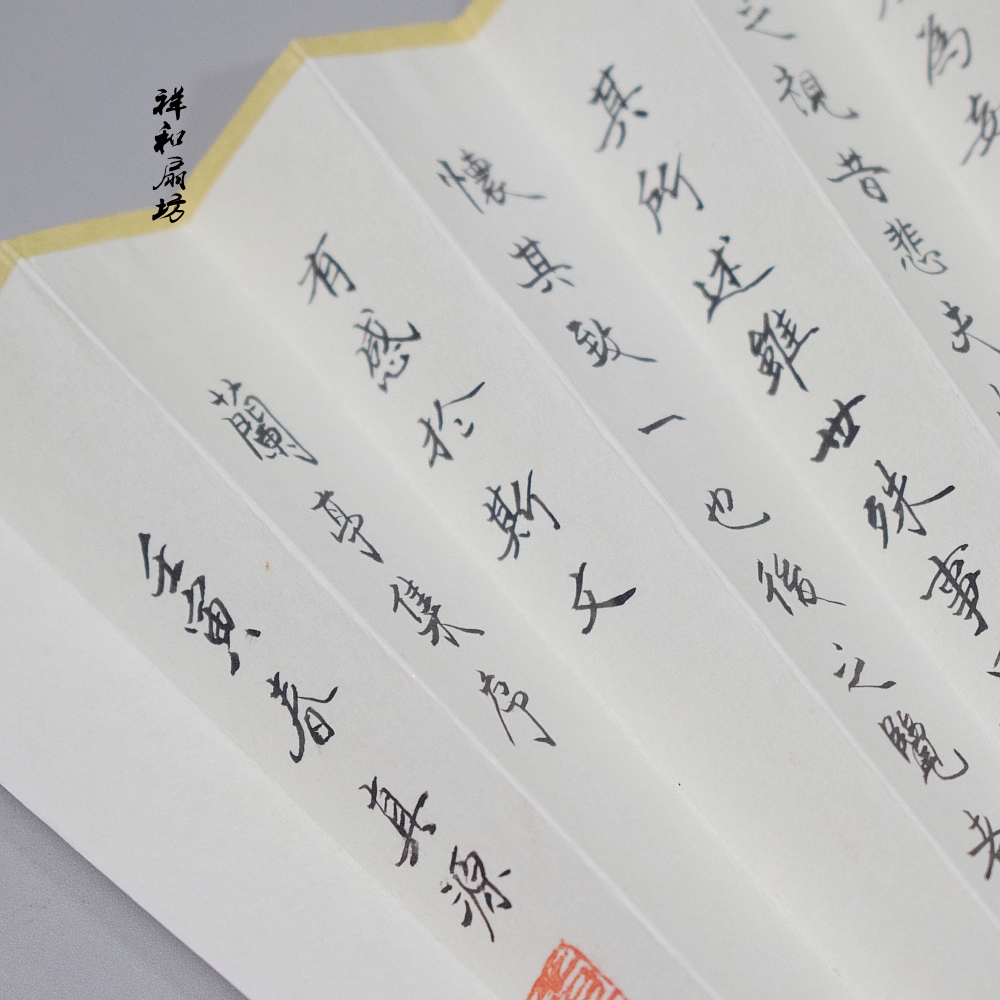 為妄
之視昔悲夫
其所述雖世殊事
懷其致一也後之覽者
有感於斯文
蘭亭集序
壬寅春真源
祥和扇坊